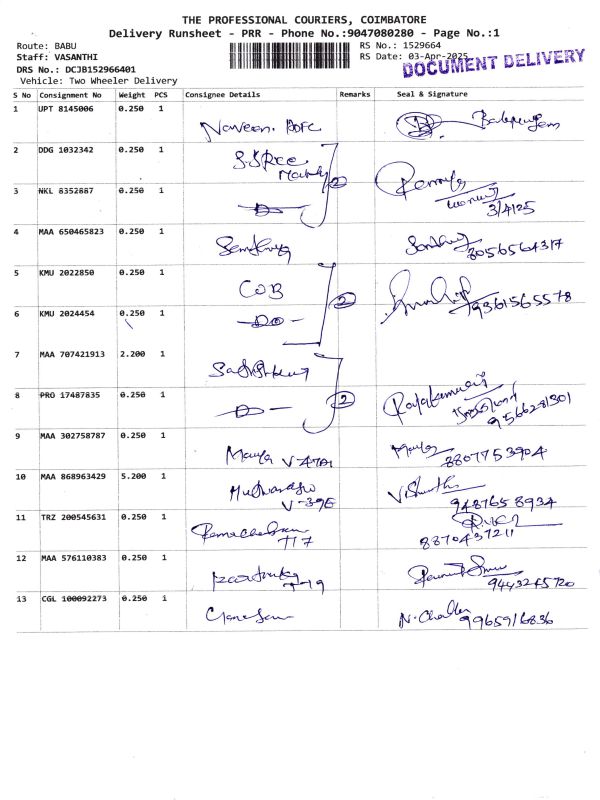 THE PROFESSIONAL COURIERS, COIMBATORE
Delivery Runsheet - PRR - Phone No.:9047080280 - Page No.:1
Route: BABU
Staff: VASANTHI
DRS No.: DCJB152966401
Vehicle: Two Wheeler Delivery
RS No.: 1529664
RS Date: 03-Apr-2025
DOCUMENT DELIVERY
S No Consignment No Weight PCS Consignee Details Remarks Seal & Signature
1 UPT 8145006 0.250 1 Naveen.
2 DDG 1032342 0.250 1 S.S Ree 2
3 NKL 8352887 0.250 1 -Do- 3/4/25
4 MAA 650465823 0.250 1 8056564317
5 KMU 2022850 0.250 1 COB 2 9361565578
6 KMU 2024454 0.250 1 -Do-
7 MAA 707421913 2.200 1
8 PRO 17487835 0.250 1 -Do- 2 Rajakumari 9566281301
9 MAA 302758787 0.250 1 V-47A1 8807753904
10 MAA 868963429 5.200 1 V-39E 9487658934
11 TRZ 200545631 0.250 1 T17 8870437211
12 MAA 576110383 0.250 1 T-19 9443245720
13 CGL 100092273 0.250 1 Ganesan 9965916836